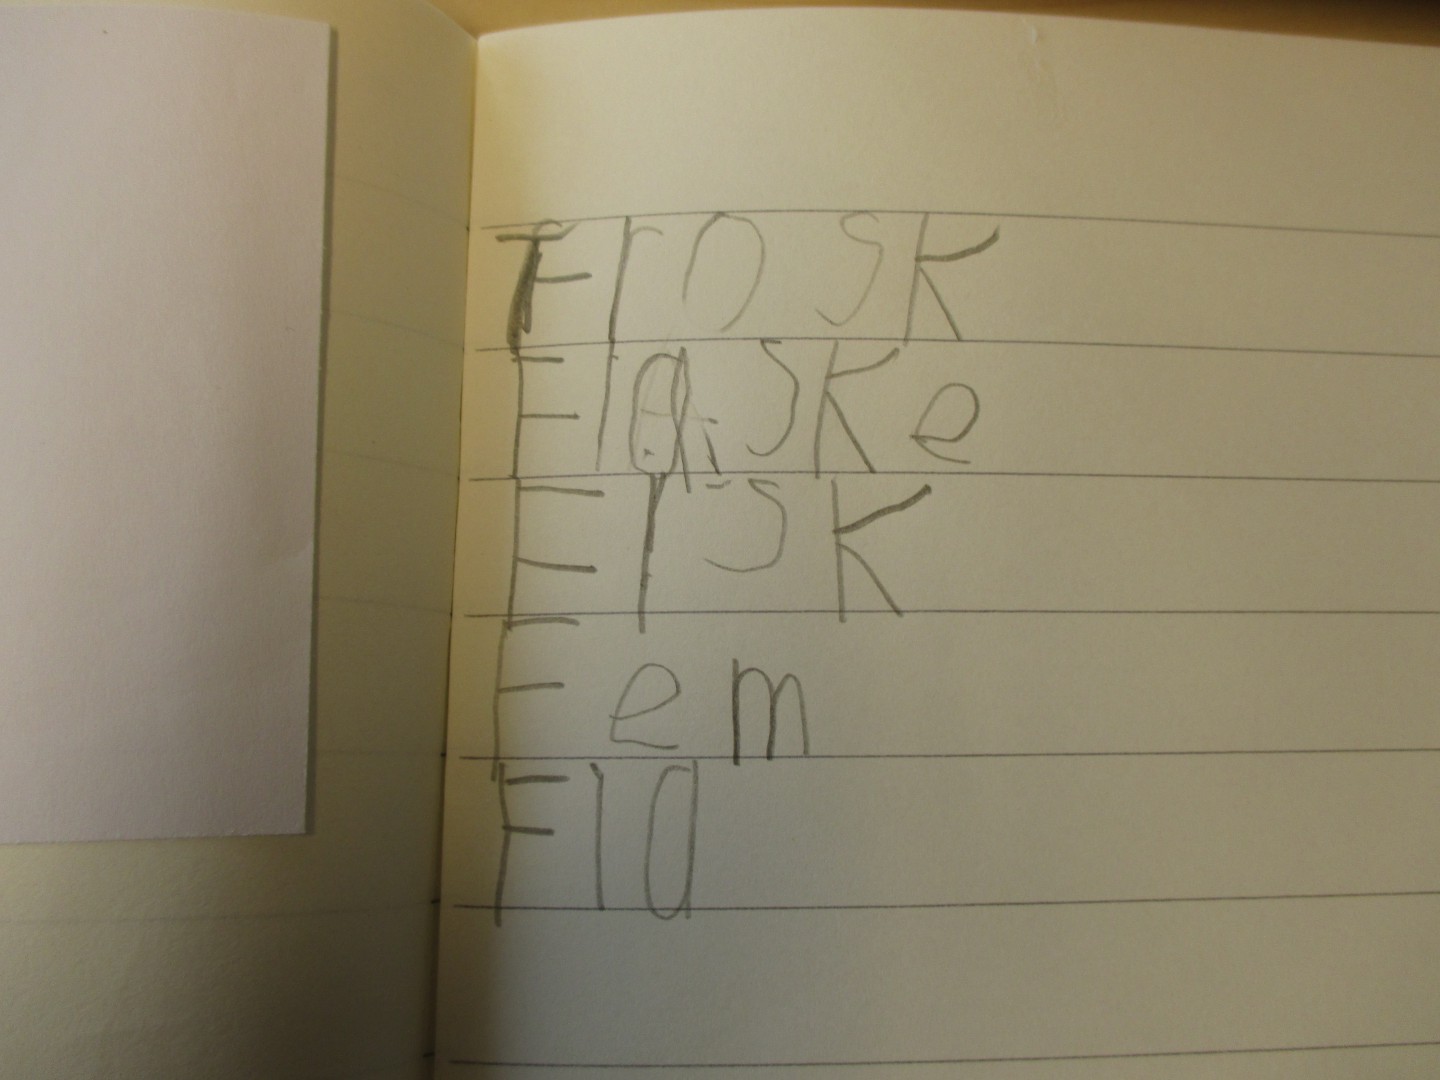 Frosk
Flaske
Fisk
Fem
Fla